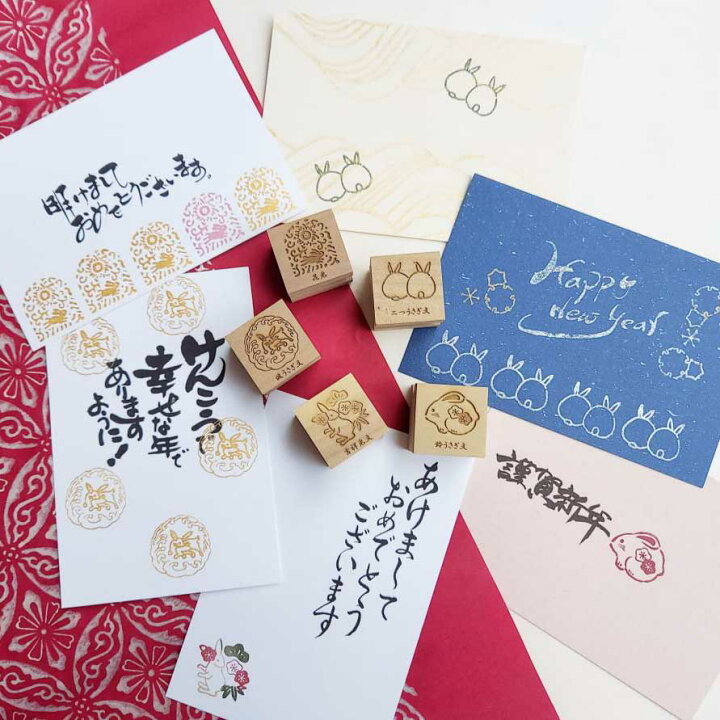 明けまして
おめでとうございます。
Happy
new Year
花兎
二つうさぎ文
波うさぎ文
吉祥兎文
鈴うさぎ文
けんこうで
幸せな年で
あります
ように!
あけまして
おめでとう
ございます
謹賀新年